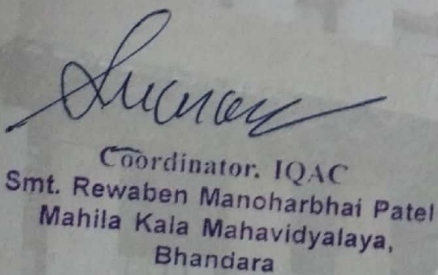 Coordinator. IQAC
Smt. Rewaben Manoharbhai Patel
Mahila Kala Mahavidyalaya,
Bhandara